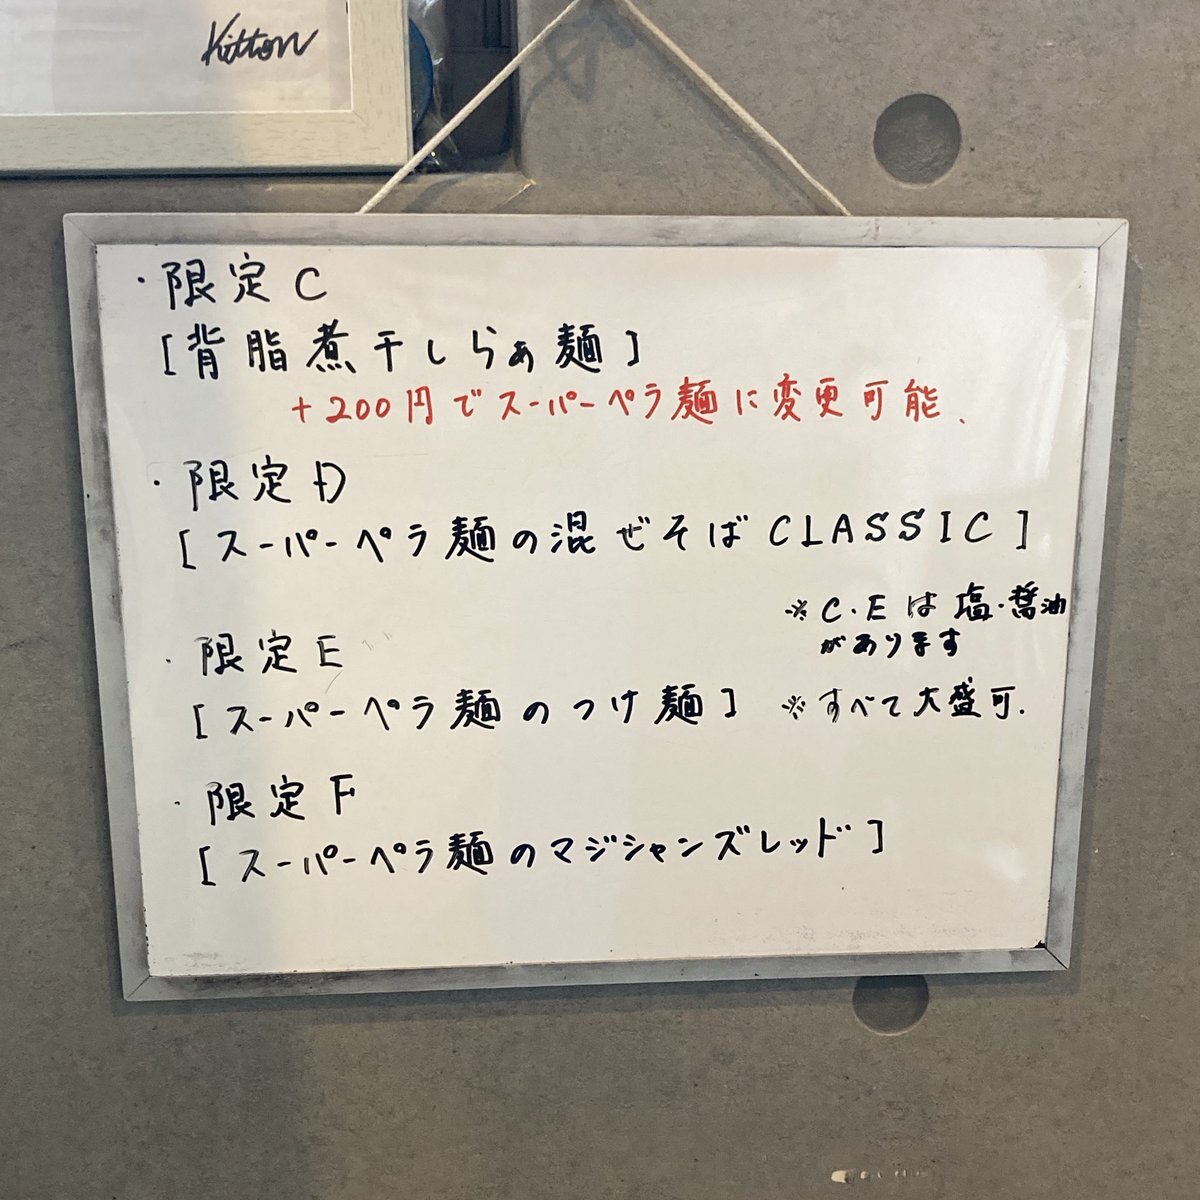 Kitton
・限定C
[背脂煮干しらぁ麺]
+200円でスーパーペラ麺に変更可能、
・限定D
[スーパーペラ麺の混ぜそばCLASSIC]
※C・Eは塩・醤油
があります
・限定E
[スーパーペラ麺のつけ麺]
※すべて大盛可.
・限定F
[スーパーペラ麺のマジシャンズレッド]